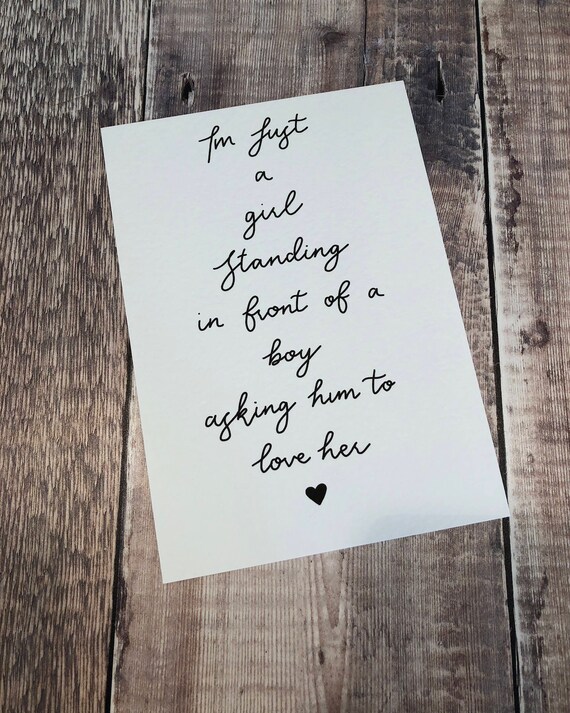 I'm just
a
girl
standing
in front of a
boy
asking him to
love her